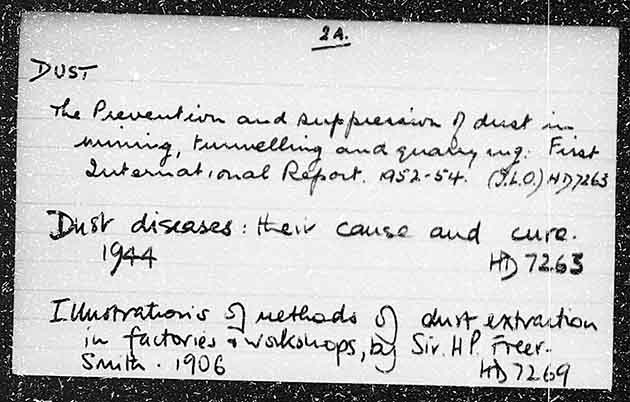 2A.
DUST
The Prevention and suppression of dust in
mining, tunnelling and quarrying: First
International Report. 1952-54. (I.L.O.) HD7263
Dust diseases: their cause and cure.
1944 HD 7263
Illustrations of methods of dust extraction
in factories & workshops, by Sir. H.P. Freer-
Smith. 1906 HD 7269